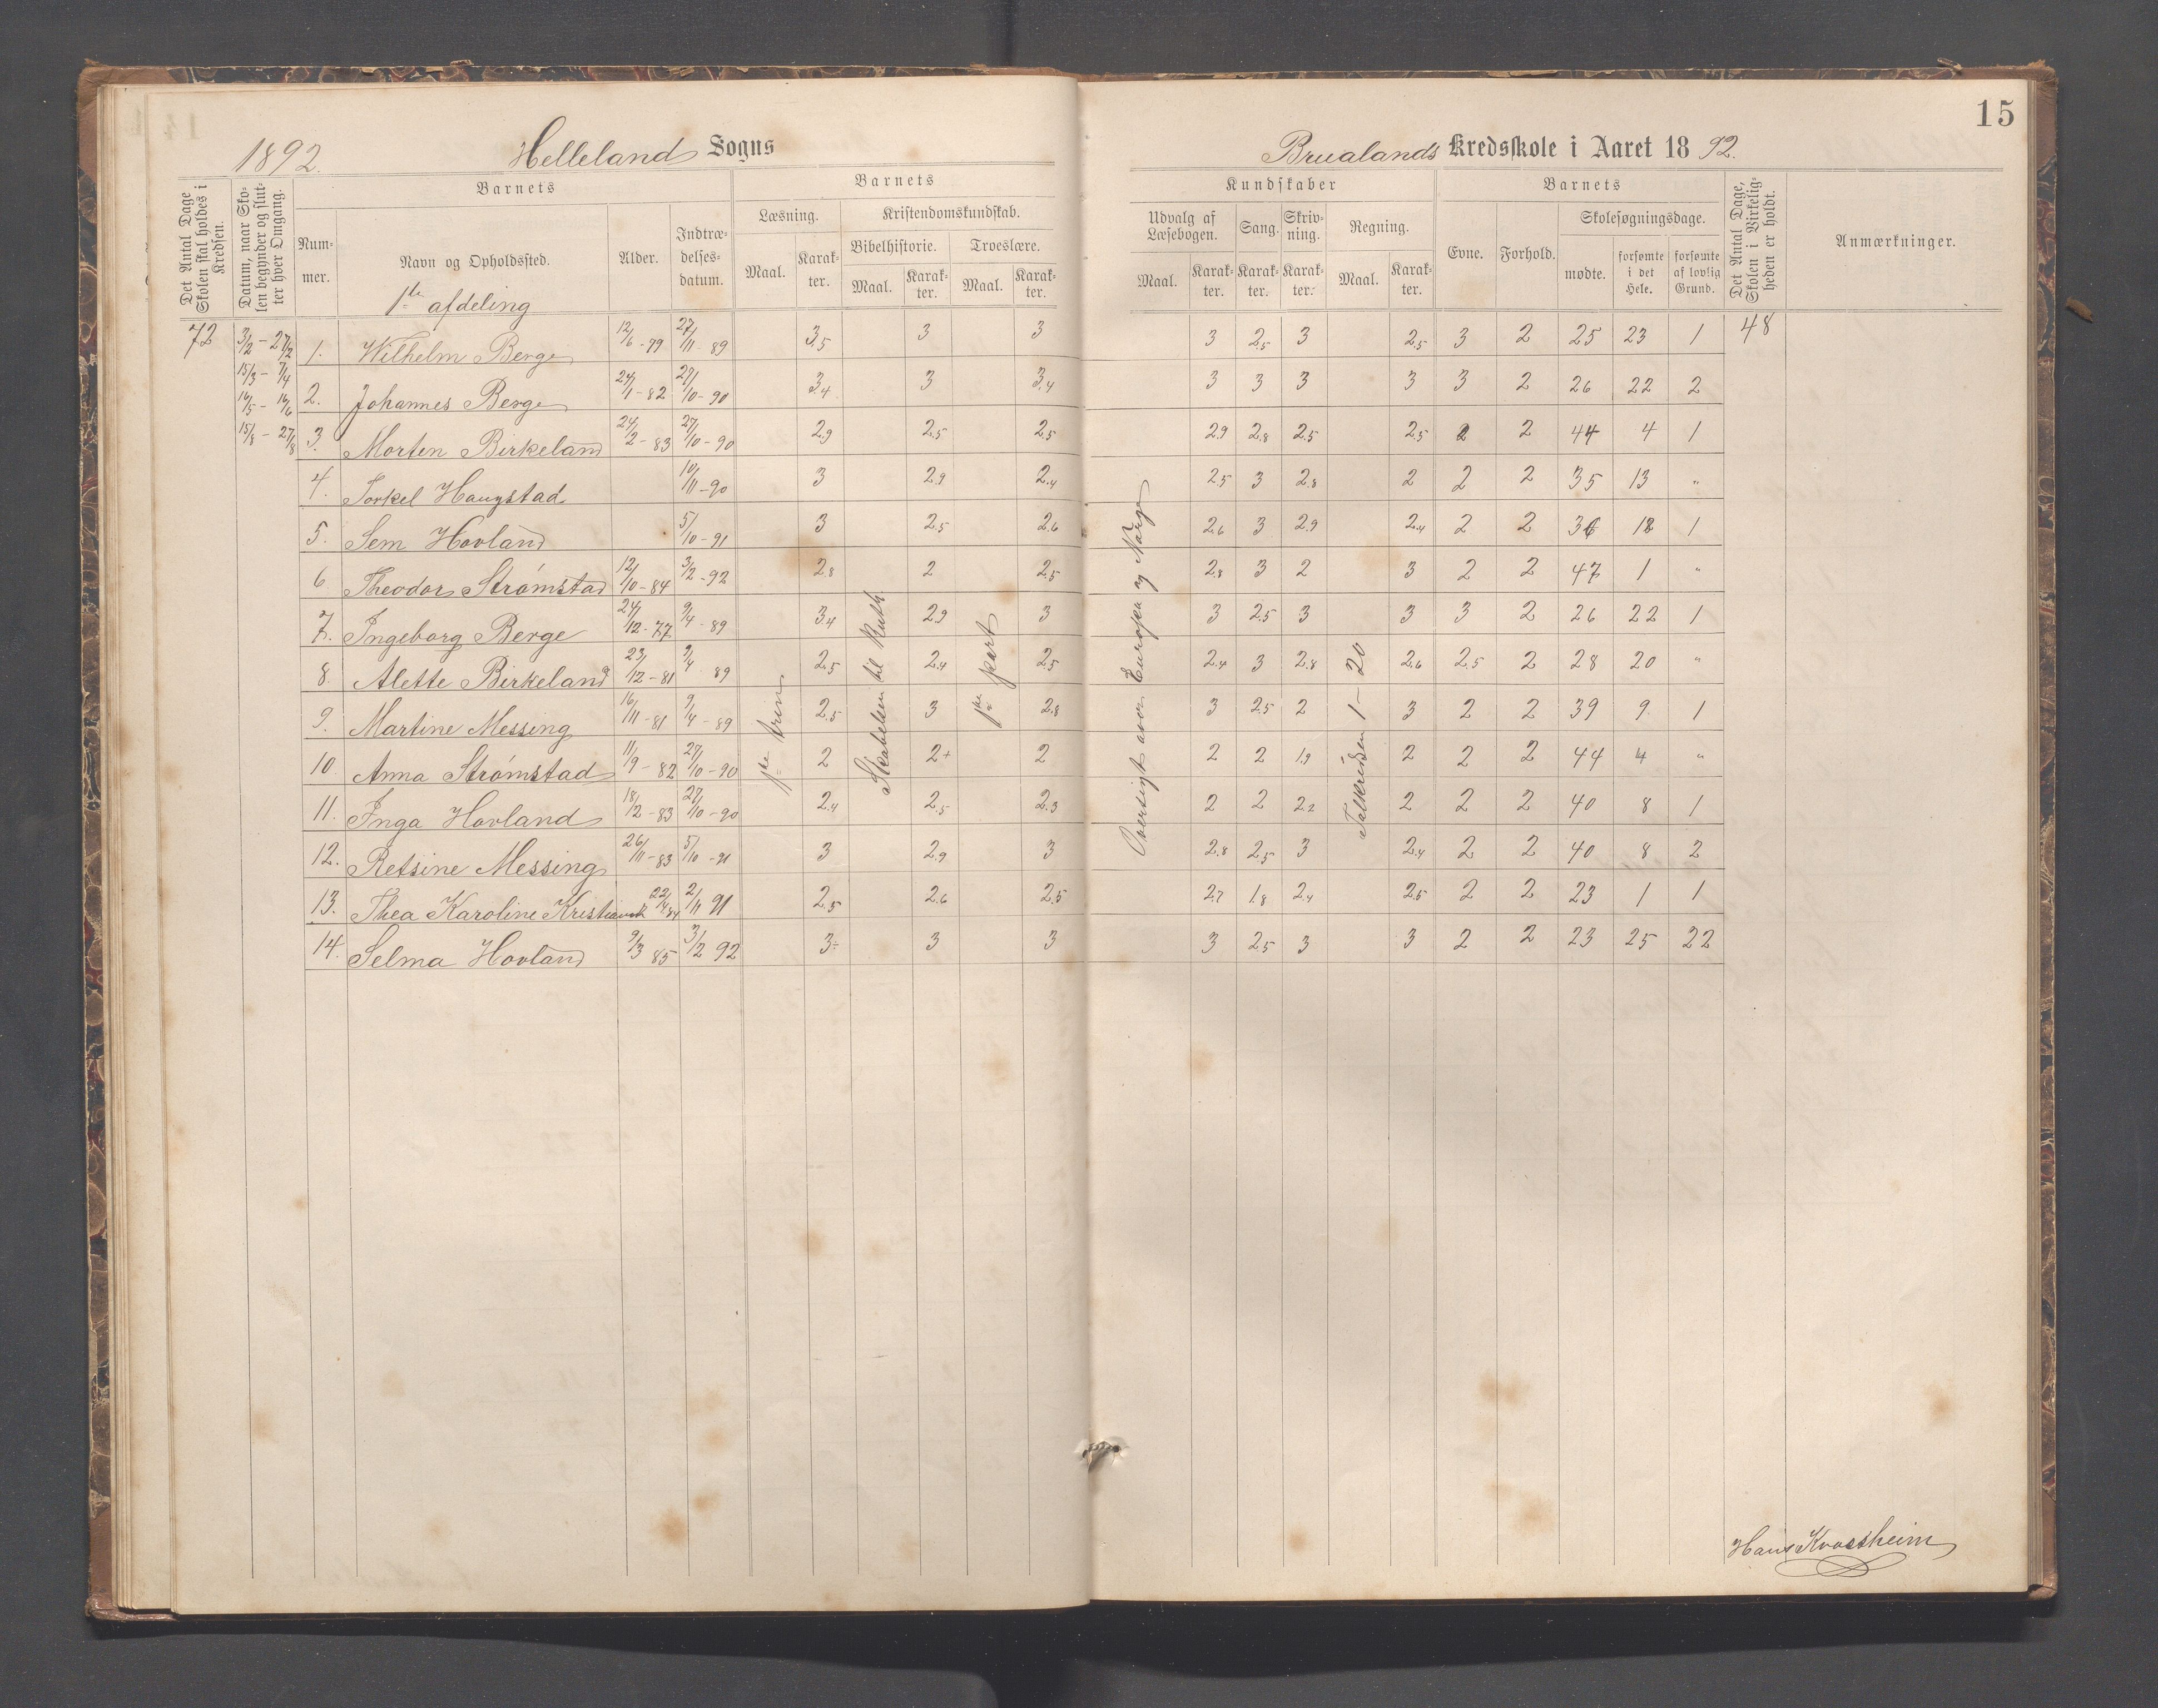 15
1892. Helleland Sogns Brualands Kredsskole i Aaret 1892.
Det Antal Dage Skolen skal holdes i Kredsen.
Datum, naar Skolen begynder og slutter hver Omgang.
Barnets
Nummer.
Navn og Opholdssted.
1ste afdeling
Alder.
Indtrædelsesdatum.
Barnets
Læsning.
Maal.
Karakter.
Kristendomskundskab.
Bibelhistorie.
Maal.
Karakter.
Troeslære.
Maal.
Karakter.
Kundskaber
Udvalg af Læsebogen.
Maal.
Karakter.
Sang.
Karakter.
Skrivning.
Karakter.
Regning.
Maal.
Karakter.
Barnets
Evne.
Forhold.
Skolesøgningsdage.
mødte.
forsømte i det Hele.
forsømte af lovlig Grund.
Det Antal Dage, Skolen i Virkeligheden er holdt.
Anmærkninger.
72
3/2 - 27/2
15/3 - 7/4
16/5 - 16/6
15/8 - 27/8
1. Wilhelm Berge 12/6 - 79 27/11 89 3.5 3 3 3 2.5 3 2.5 3 2 25 23 1 48
2. Johannes Berge 24/1 - 82 27/10 - 90 3.4 3 3.4 3 3 3 3 3 2 26 22 2
3. Morten Birkeland 24/2 - 83 27/10 - 90 2.9 2.5 2.5 2.9 2.8 2.5 2.5 2 2 44 4 1
4. Torkel Haugstad 10/11 - 90 3 2.9 2.4 2.5 3 2.8 2 2 2 35 13 "
5. Sem Hovland 5/10 - 91 3 2.5 2.6 2.6 3 2.9 2.4 2 2 36 12 1
6 Theodor Strømstad 12/10 - 84 3/2 - 92 2.8 2 2.5 2.8 3 2 3 2 2 47 1 "
7. Ingeborg Berge 24/12 - 77 9/4 - 89 3.4 2.9 3 3 2.5 3 3 3 2 26 22 1
8. Alette Birkeland 23/12 - 81 9/4 89 2.5 2.4 2.5 2.4 3 2.8 2.6 2.5 2 28 20 "
9. Martine Messing 16/11 - 81 9/4 - 89 2.5 3 2.8 3 2.5 2 3 2 2 39 9. 1
10 Anna Strømstad 11/9 - 82 27/10 - 90 2 2+ 2 2 2 1.9 2 2 2 44 4 "
11. Inga Hovland 18/2 - 83 27/10 - 90 2.4 2.5 2.3 2 2 2.2 2 2 2 40 8 1
12. Retsine Messing 26/11 - 83 5/10 - 91 3 2.9 3 2.8 2.5 3 2.4 2 2 40 8 2
13. Thea Karoline 22/4 84 2/11 91 2.5 2.6 2.5 2.7 1.8 2.4 2.5 2 2 23 1 1
14. Selma Hovland 9/3 85 3/2 92 3÷ 3 3 3 2.5 3 3 2 2 23 25 22
1ste trin
Skabelsen til Ruth
1ste part
Oversigt over Europa og Norge
Talkredsen 1 - 20
Hans Kvassheim